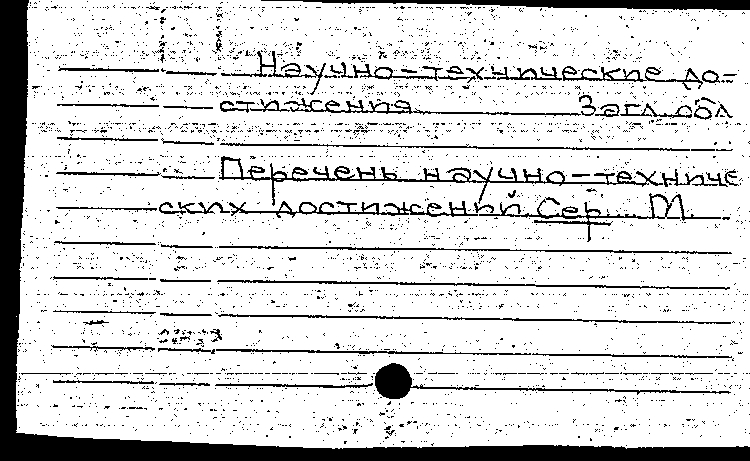 Научно-технические до-
стижения Загл. обл
Перечень научно-техниче
ских достижений. Сер... М.